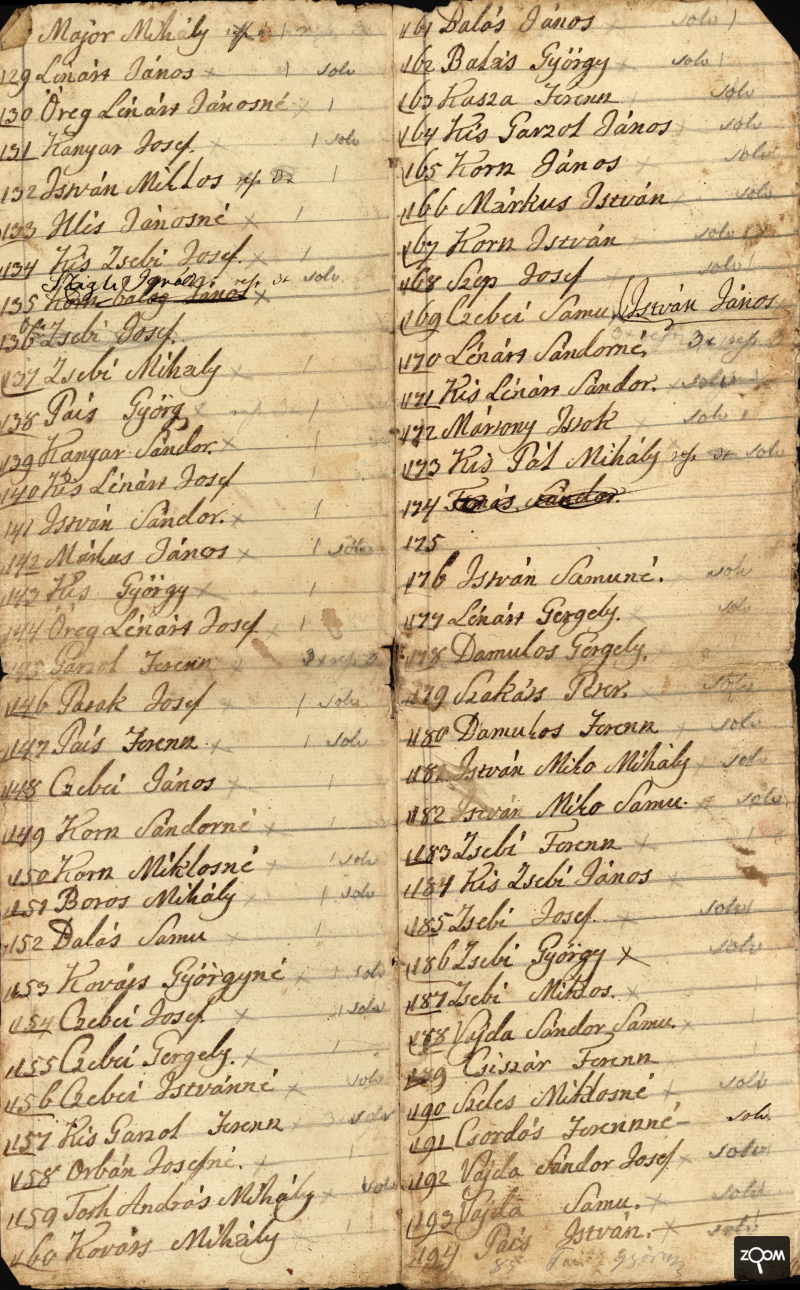 Major Mihály
129 Lénárt János solv
130 Öreg Lénárt Jánosné 1
131 Kanyar Josef. 1 solv
132 István Miklos ref. 1
133 Illés Jánosné 1
134 Kis Zsebi Josef. 1
solv
135 Korn balog János
136 Zsebi Josef.
137 Zsebi Mihaly 1
138 Pais Györg 1
139 Kanyar Sándor. 1
140 Kis Lénárt Josef 1
141 István Sándor. 1
142 Márkus János 1 solv
143 Kis György 1
144 Öreg Lénárt Josef 1
145 Garzol Ferenn
146 Patak Josef 1 solv
147 Pais Ferenn 1 solv
148 Czebei János 1
149 Korn Sándorné 1
150 Korn Miklosné 1 solv
151 Boros Mihály 1 solv
152 Dalás Samu 1
153 Kovács Györgyné 1 solv
154 Czebei Josef. 1 solv
155 Czebei Gergely. 1
156 Czebei Istvánné solv
157 Kis Garzol Ferenn solv
158 Orbán Josefné. 1
159 Toth András Mihály solv
160 Kovárs Mihály 1
161 Dalás János solv 1
162 Balás György solv 1
163 Kasza Ferenn solv
164 Kis Garzol János solv
165 Korn János solv
166 Márkus István solv
167 Korn István solv
168 Szep Josef solv 1
169 Czebei Samu (István János
170 Lénárt Sándorné,
171 Kis Lénárt Sándor. solv
172 Márton Issok solv
173 Kis Pál Mihály ref. solv
174 Sándor.
175
176 István Samuné. solv
177 Lénárt Gergely. solv
178 Damukos Gergely.
179 Szakáts Peter. solv
180 Damukos Ferenn solv
181 István Miko Mihály solv
182 István Miko Samu. solv
183 Zsebi Ferenn 1
184 Kis Zsebi János
185 Zsebi Josef. solv
186 Zsebi György x solv
187 Zsebi Miklos. 1
188 Vajda Sándor Samu. 1
189 Csiszár Ferenn 1
190 Szeles Miklosné solv
191 Csordás Ferennné- solv.
192 Vajda Sándor Josef solv
193 Vajda Samu. solv
194 Pais István. solv
ZOOM